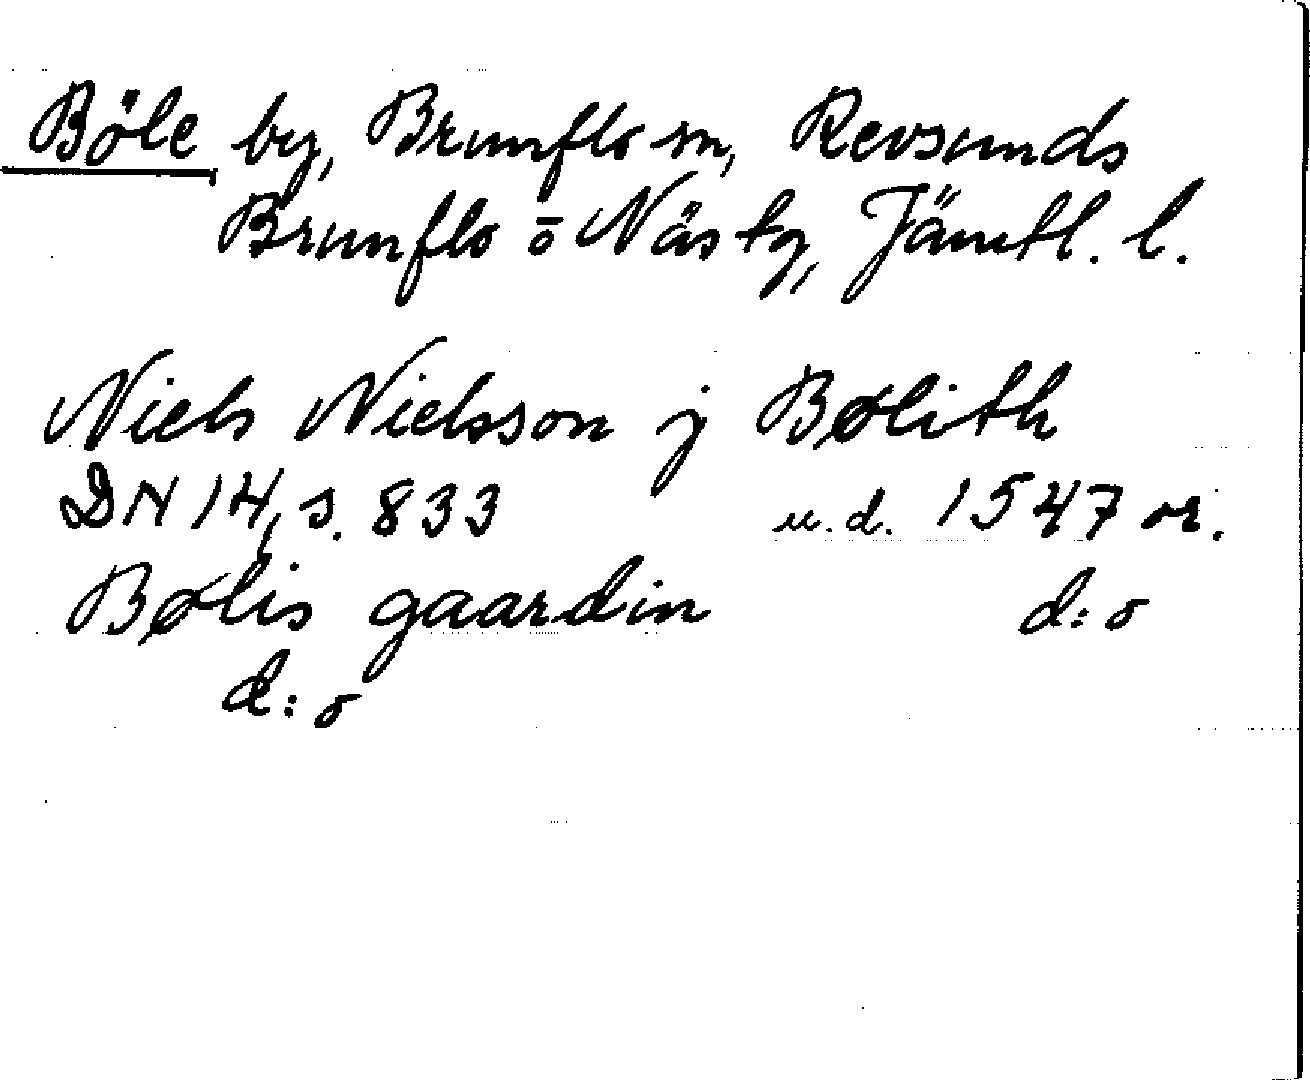 Böle by, Brunflo sn, Revsunds
Brunflo ō Näs tg, Jämtl. l.
Niels Nielsson j Bølith
DN 14, s. 833 u.d. 1547 or.
Bølis gaardin d:o
d:o